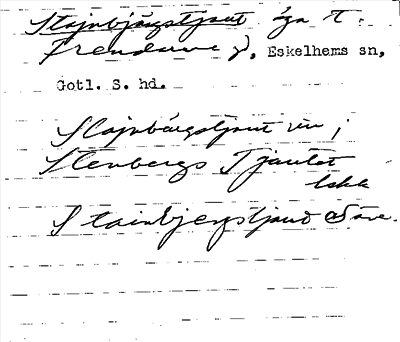 Stajnbjärgstjaut äga t.
Frendarve g, Eskelhems sn,
Gotl. S. hd.
Stajnbärgstjaut
Stenbergs Tjautet
Stainbjergstjaud Säve.